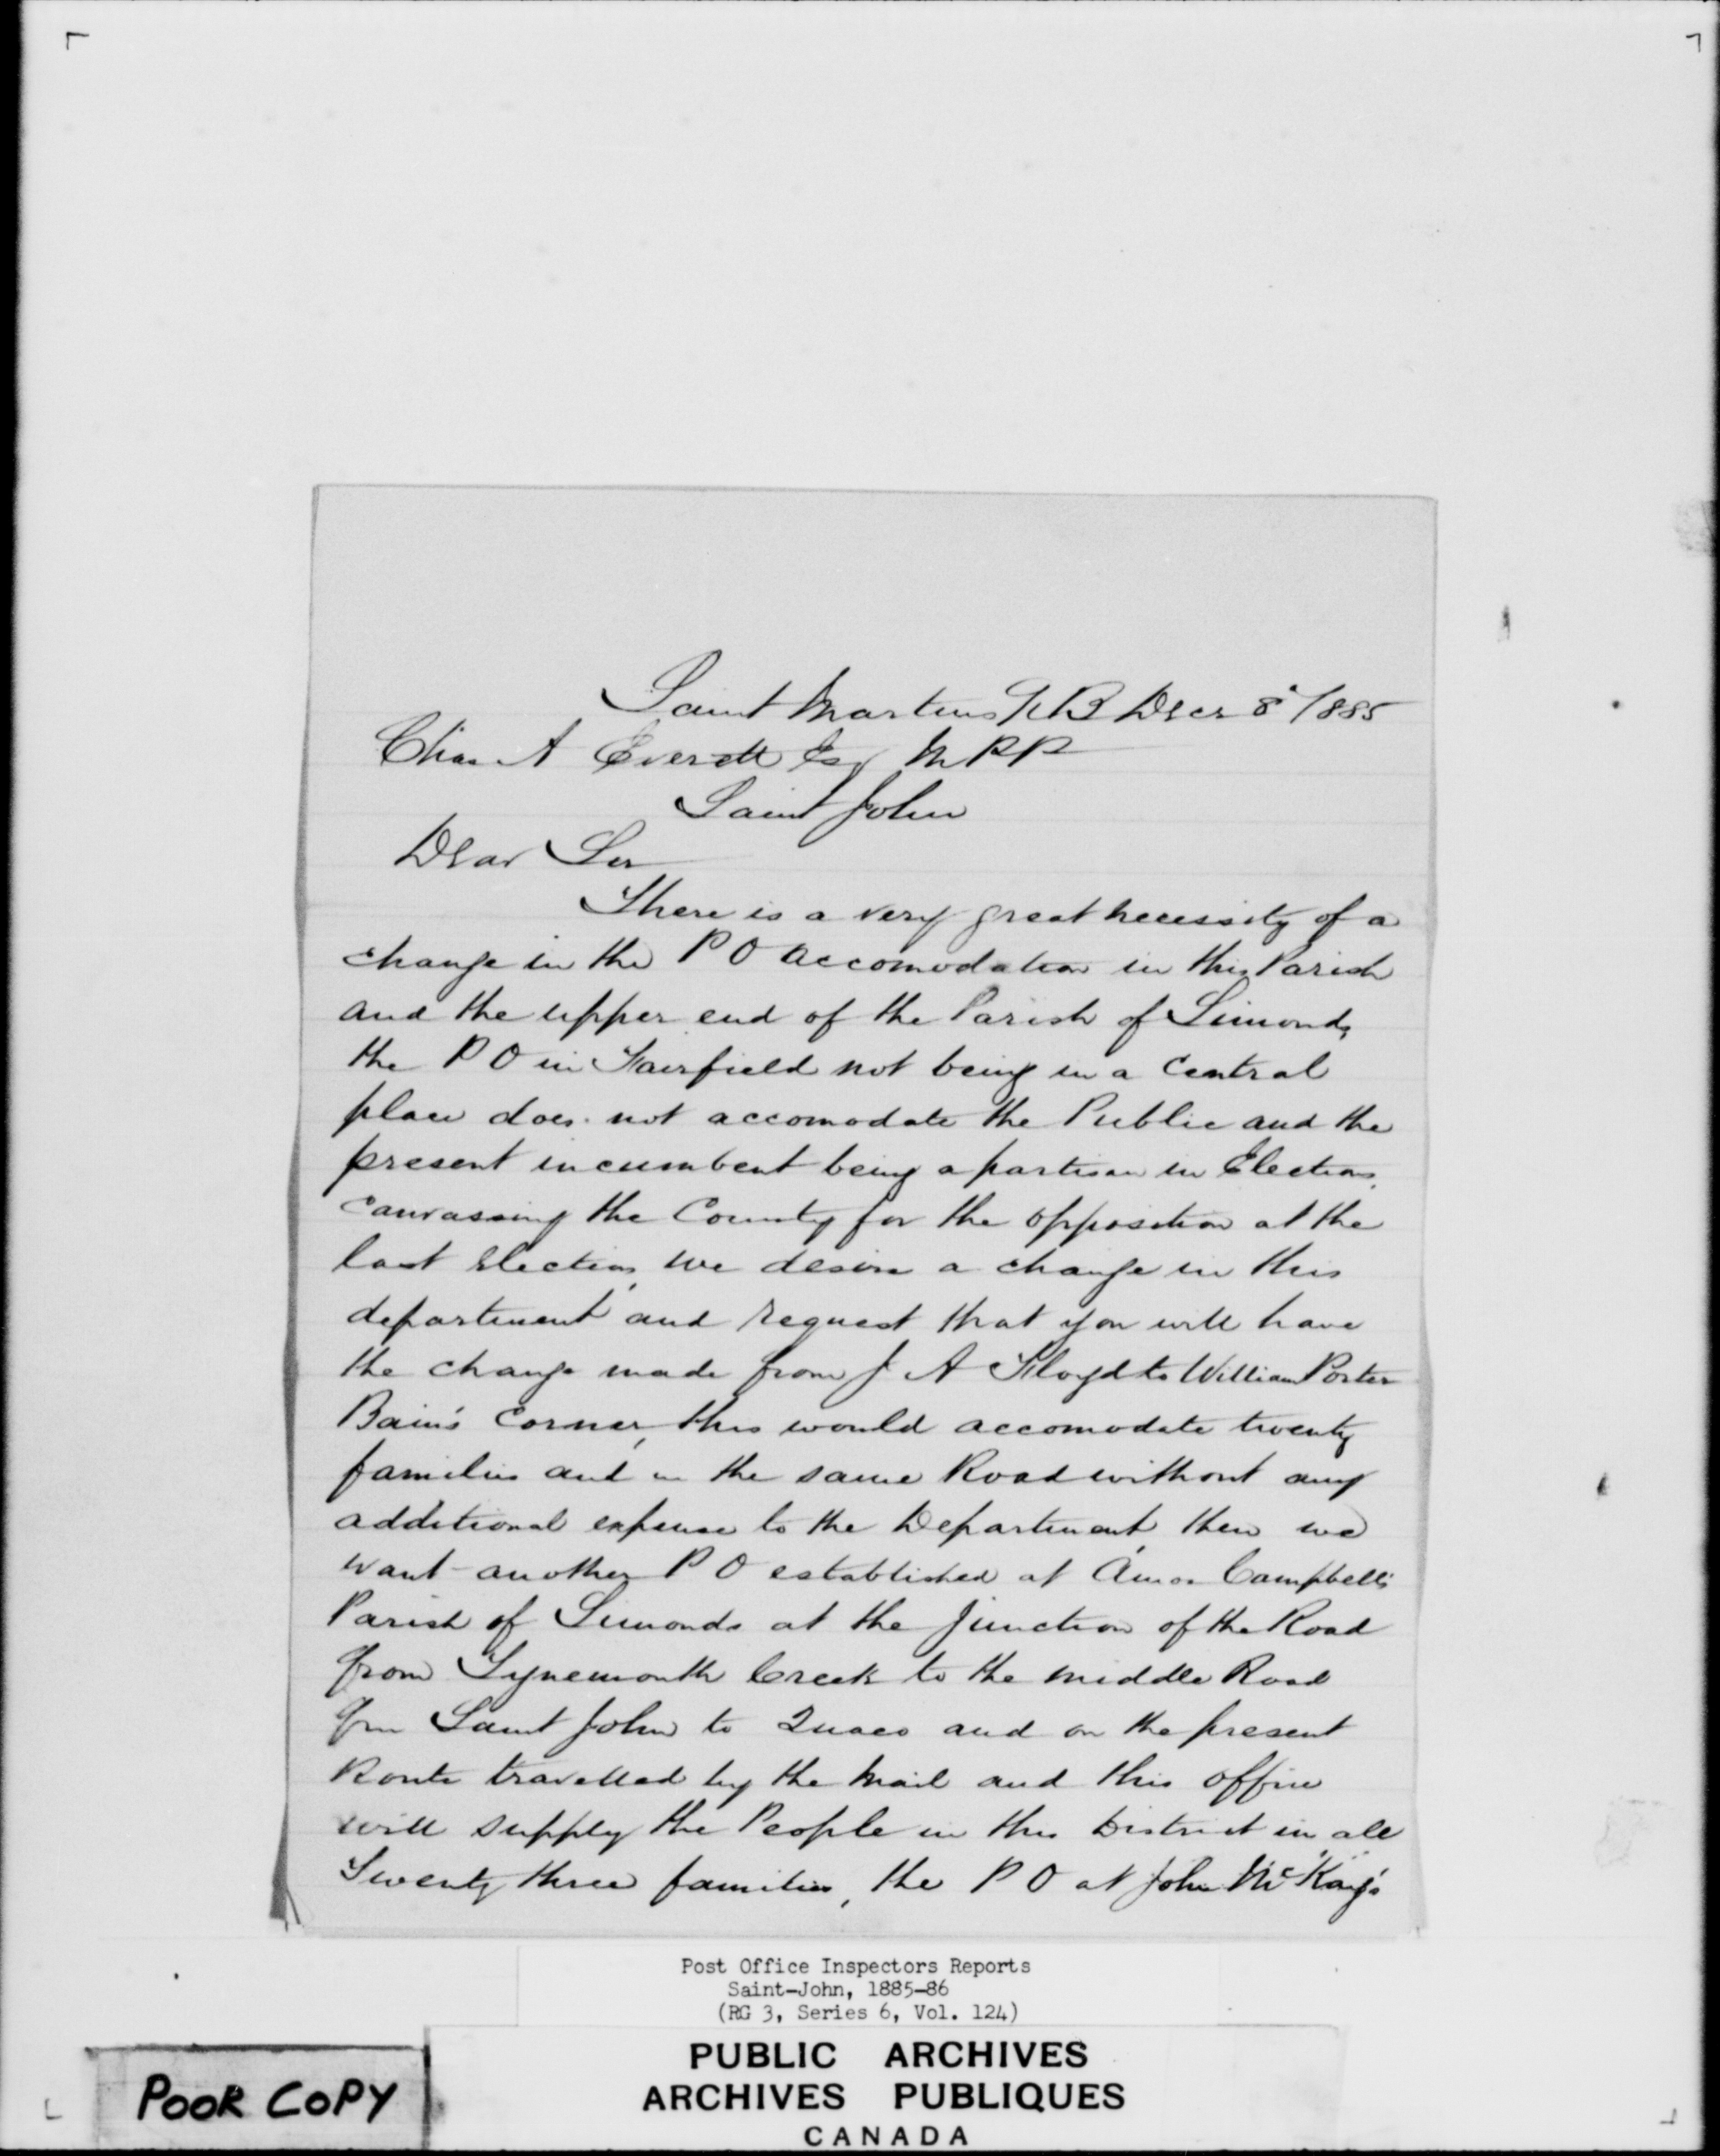 Saint Martins NB Decr 8th/885
Chas A Everett Esq MPP
Saint John
Dear Sir
There is a very great necessity of a
change in the P O accomodation in this Parish
and the upper end of the Parish of Simonds,
the P O in Fairfield not being in a Central
place does not accomodate the Public and the
present incumbent being a partisan in Elections,
canvassing the County for the opposition at the
last Election, we desire a change in this
department and request that you will have
the change made from J A Floyd to William Porter
Bain's Corner, this would accomodate twenty
families and in the same Road without any
additional expense to the Department, then we
want another P O established at Amos Campbell's
Parish of Simonds at the Junction of the Road
from Tynemouth Creek to the middle Road
from Saint John to Quaco and on the present
Route travelled by the Mail and this office
will supply the People in this District in all
Twenty three families, the P O at John McKay's
Post Office Inspectors Reports
Saint-John, 1885-86
(RG 3, Series 6, Vol. 124)
PUBLIC ARCHIVES
ARCHIVES PUBLIQUES
CANADA
POOR COPY